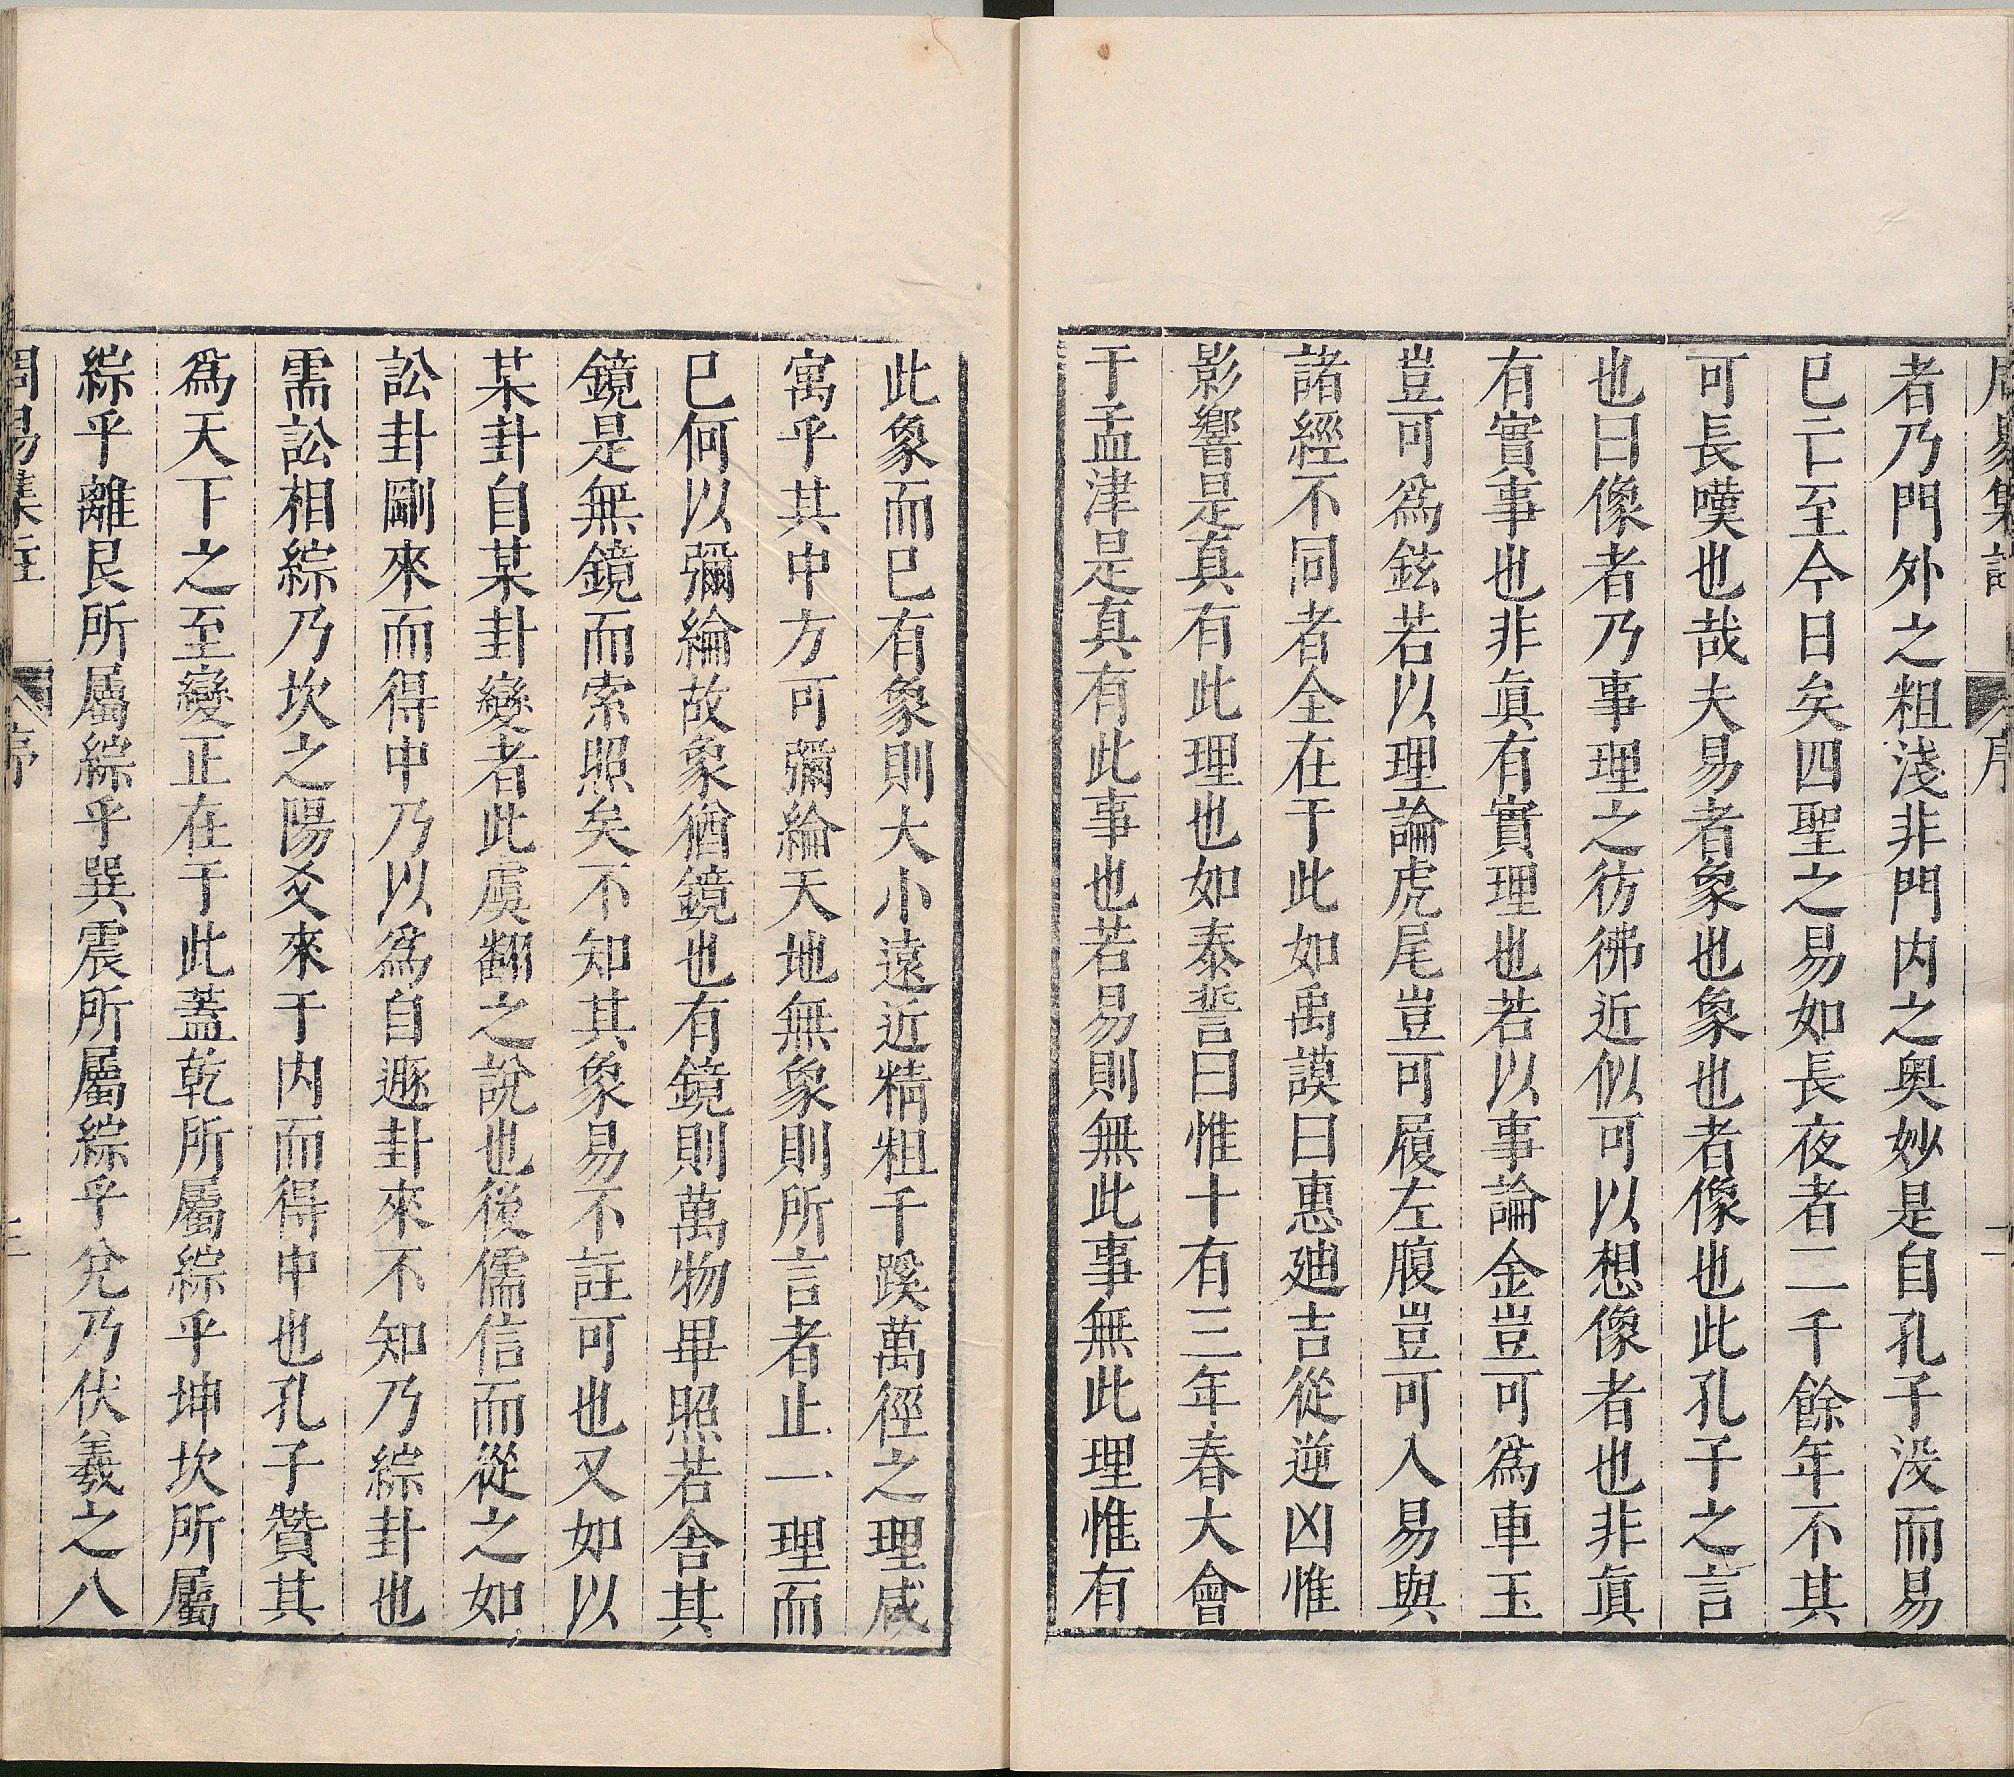 周易集註 序 二
者乃門外之粗淺非門内之奥妙是自孔子没而易
已亡至今日矣四聖之易如長夜者二千餘年不其
可長嘆也哉夫易者象也象也者像也此孔子之言
也曰像者乃事理之彷彿近似可以想像者也非眞
有實事也非眞有實理也若以事論金豈可爲車玉
豈可爲鉉若以理論虎尾豈可履左腹豈可入易與
諸經不同者全在于此如禹謨曰惠廸吉從逆凶惟
影響是真有此理也如泰誓曰惟十有三年春大會
于孟津是真有此事也若易則無此事無此理惟有
此象而已有象則大小遠近精粗千蹊萬徑之理咸
寓乎其中方可彌綸天地無象則所言者止一理而
已何以彌綸故象猶鏡也有鏡則萬物畢照若舍其
鏡是無鏡而索照矣不知其象易不註可也又如以
某卦自某卦變者此虞翻之說也後儒信而從之如
訟卦剛來而得中乃以爲自遯卦來不知乃綜卦也
需訟相綜乃坎之陽爻來于内而得中也孔子贊其
爲天下之至變正在于此蓋乾所屬綜乎坤坎所屬
綜乎離艮所屬綜乎巽震所屬綜乎兊乃伏羲之八
周易集註 序 三